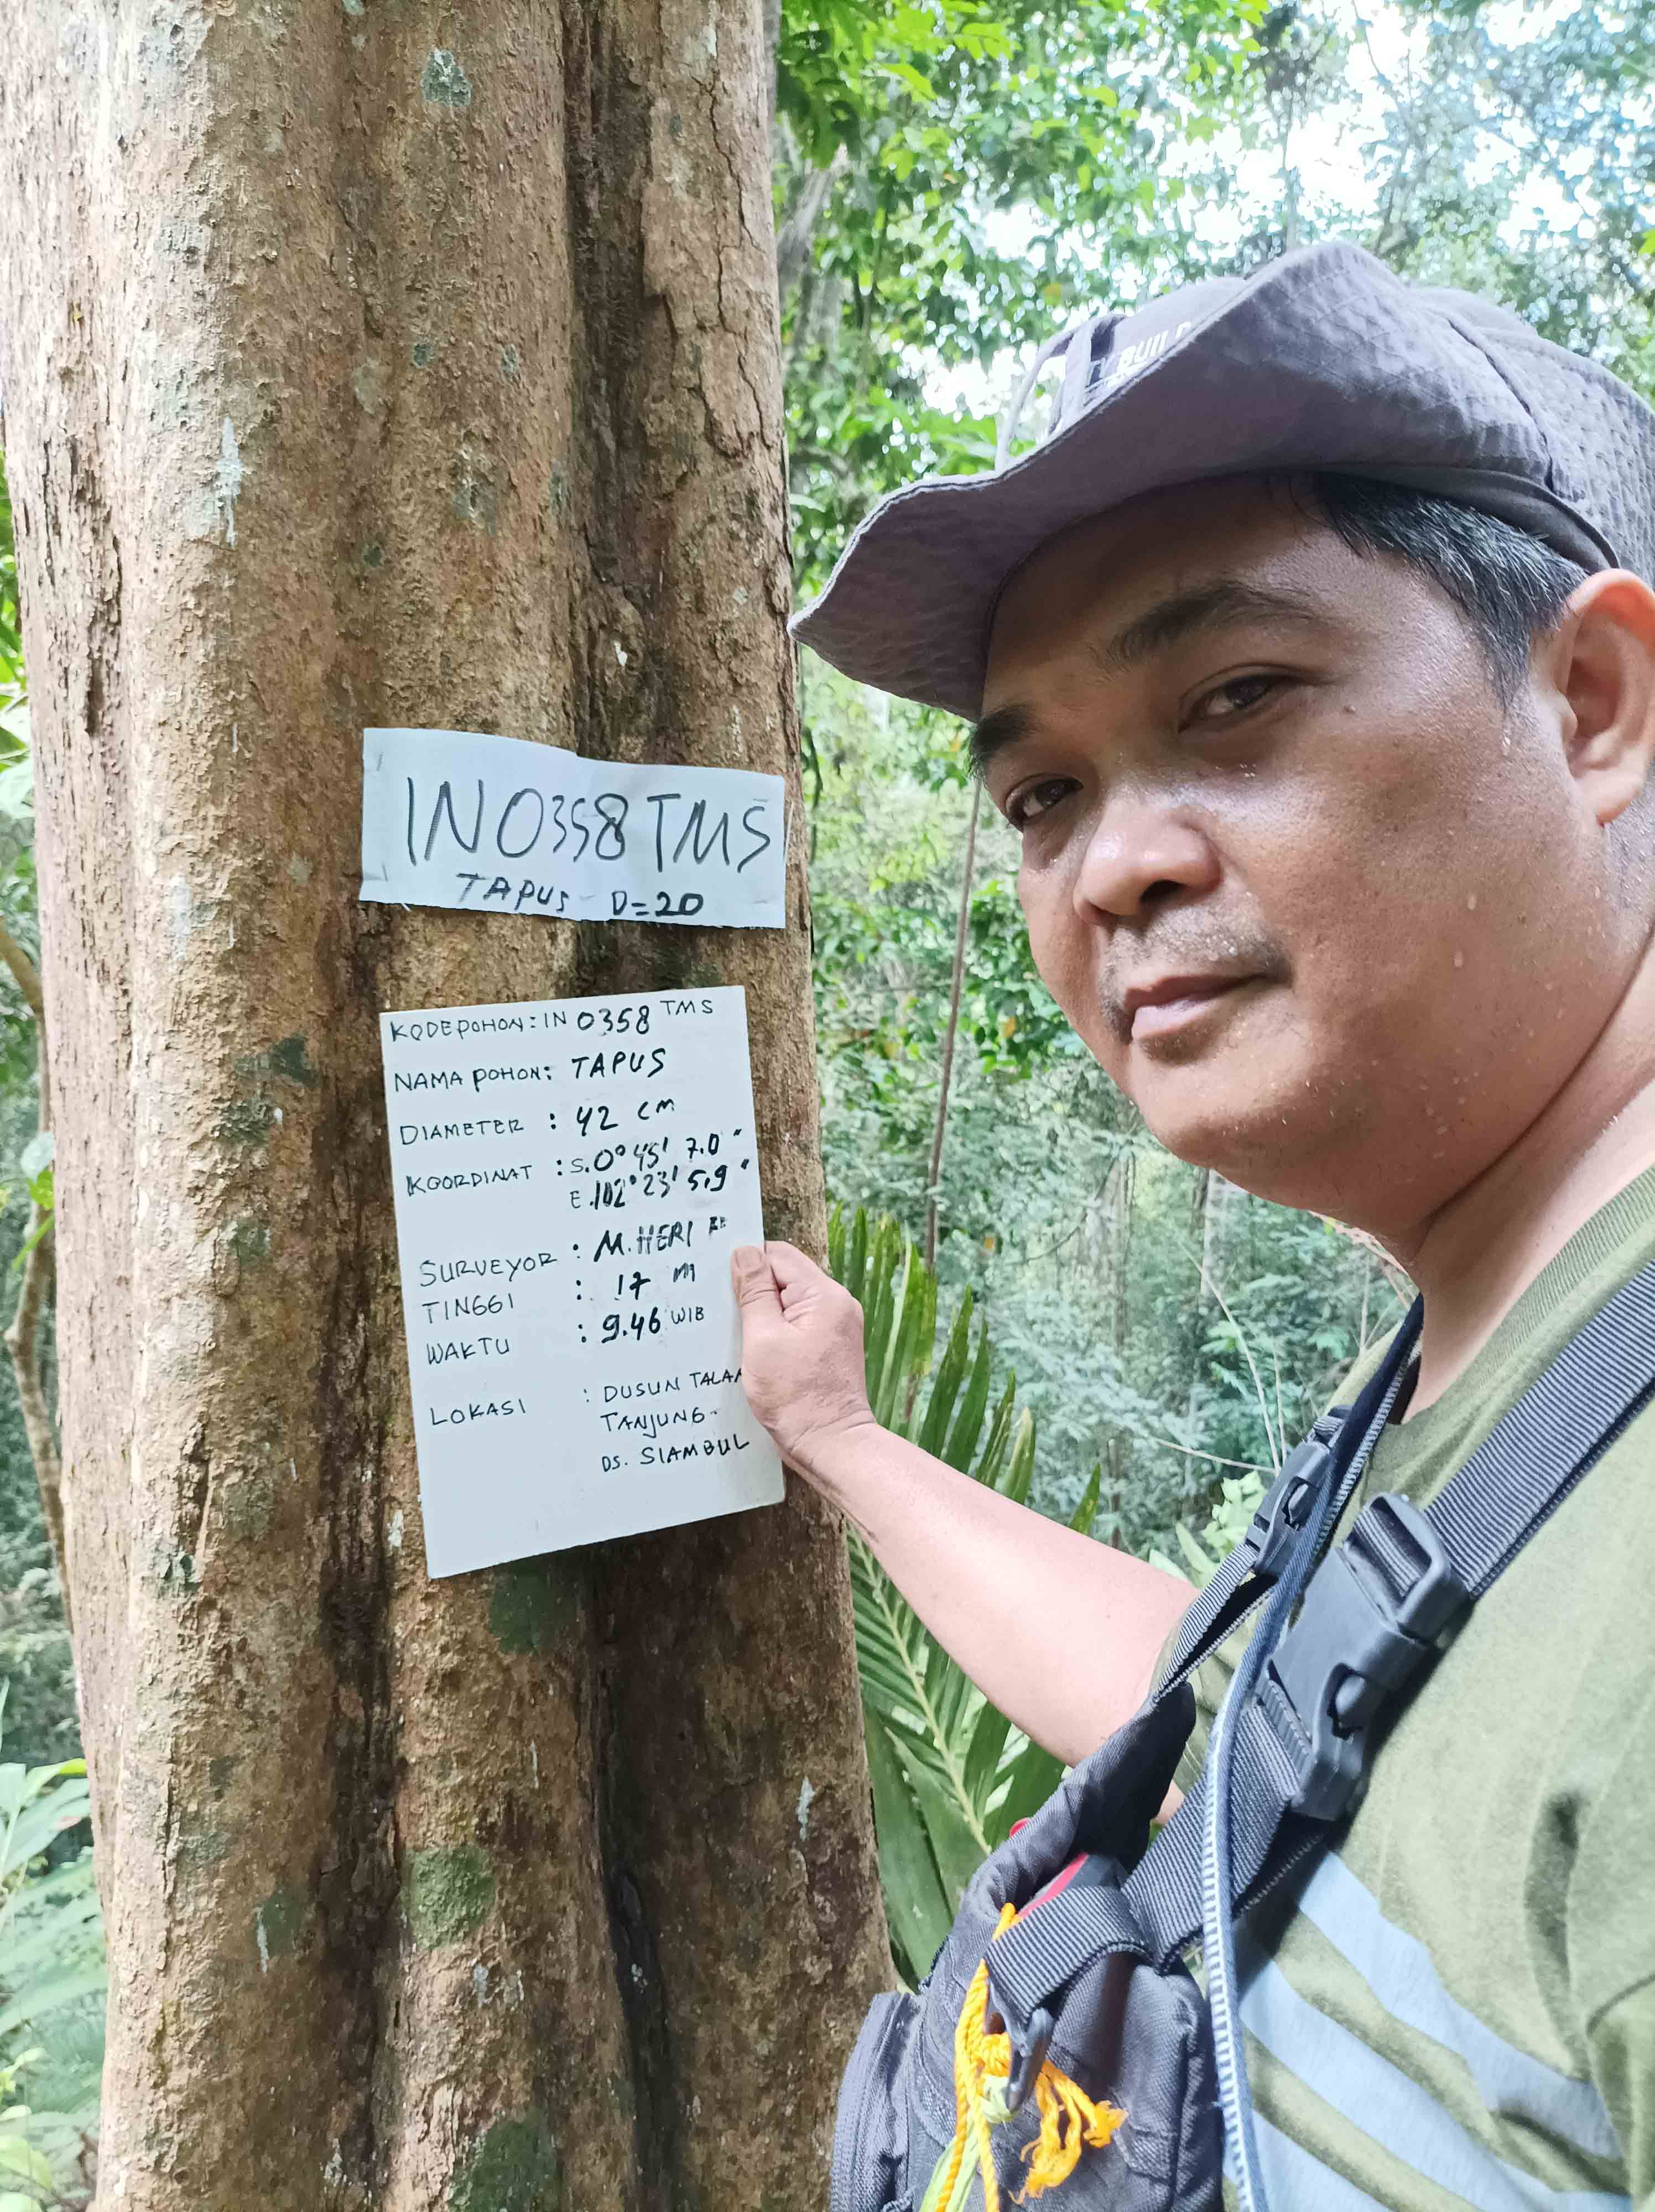 IN 0358 TMS
TAPUS D=20
KODE POHON: IN 0358 TMS
NAMA POHON: TAPUS
DIAMETER : 42 CM
KOORDINAT : S.0° 45' 7.0"
E.102° 23' 5,9"
SURVEYOR : M.HERI
TINGGI : 17 m
WAKTU : 9.46 WIB
LOKASI : DUSUN TALAN
TANJUNG-
DS. SIAMBUL